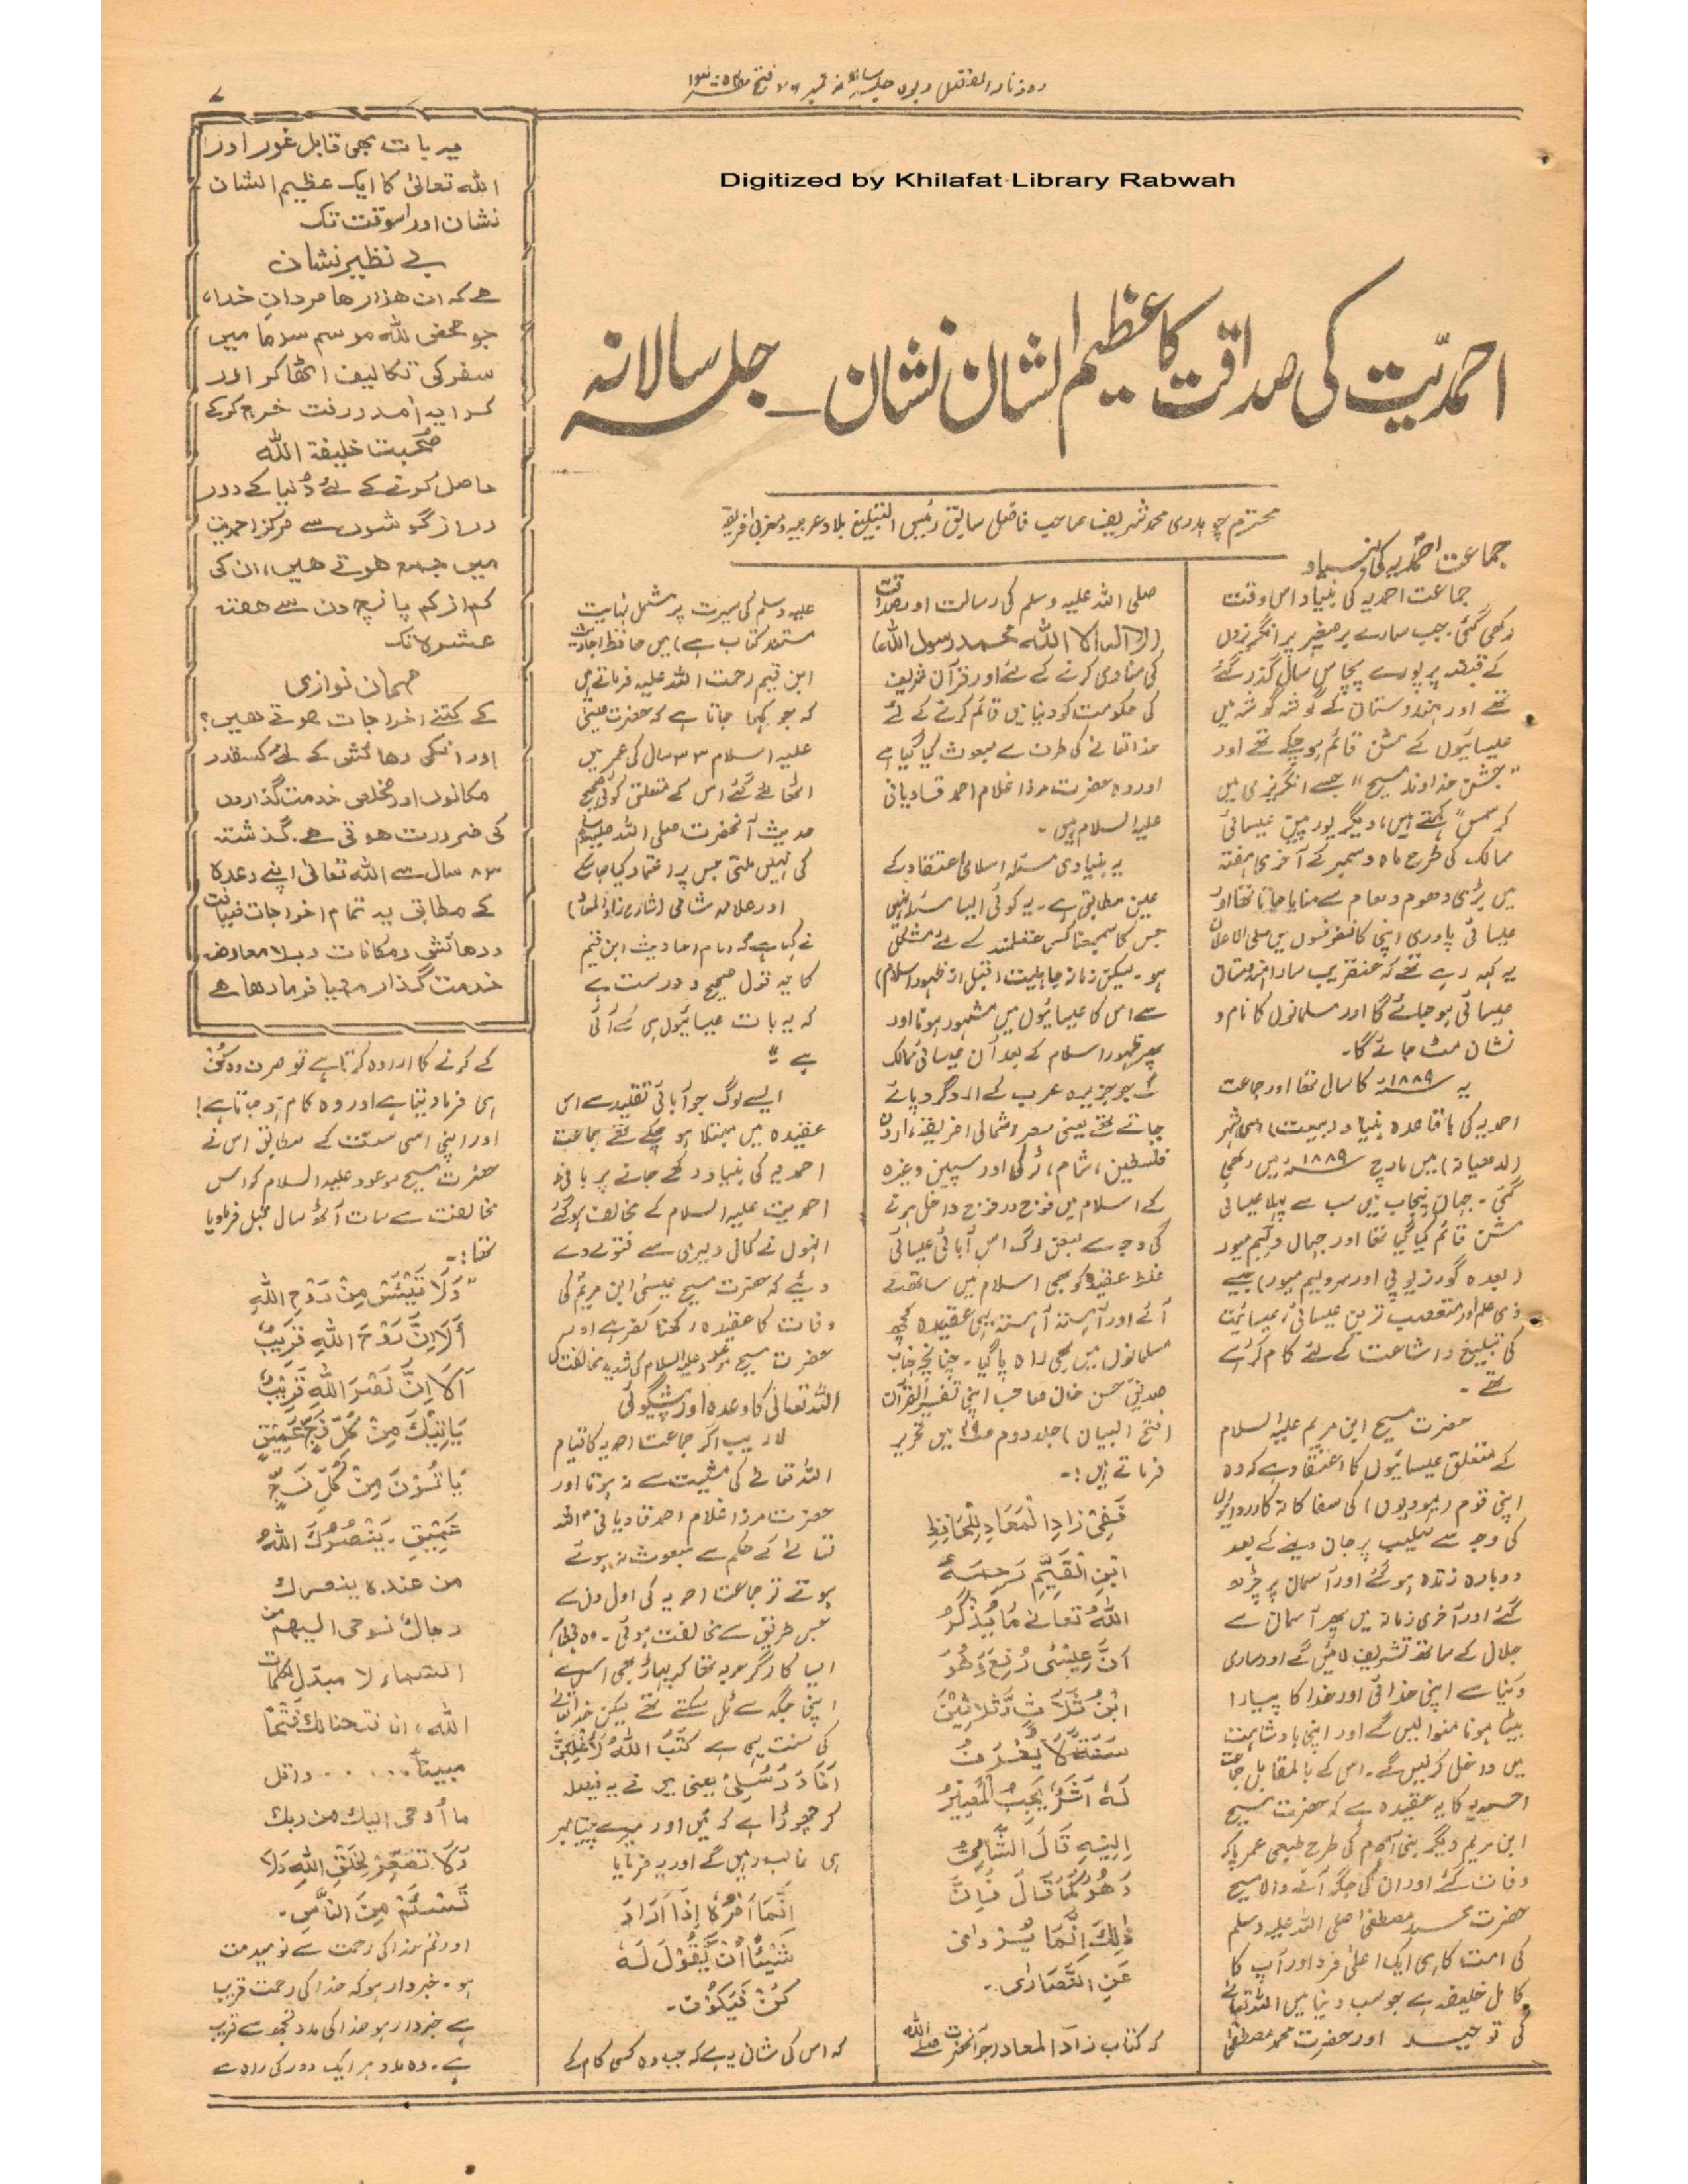 روزنامہ الفضل ربوہ جلسہ سالانہ نمبر
۷
Digitized by Khilafat Library Rabwah
احمدیّت کی صداقت کا عظیم الشان نشان ـ جلسہ سالانہ
محترم چوہدری محمد شریف صاحب فاضل سابق رئیس التبلیغ بلاد عربیہ و مغربی افریقہ
جماعت احمدیہ کی بنیاد
جماعت احمدیہ کی بنیاد اس وقت
رکھی گئی۔ جب سارے برصغیر پر انگریزوں
کے قبضہ پر پورے پچاس سال گذر گئے
تھے اور ہندوستان کے گوشہ گوشہ میں
عیسائیوں کے مشن قائم ہو چکے تھے اور
"جشن خداوند مسیح" جسے انگریزی میں
کرسمس کہتے ہیں، دیگر یورپین عیسائی
ممالک کی طرح ماہ دسمبر کے آخری ہفتہ
میں بڑی دھوم دھام سے منایا جاتا تھا اور
عیسائی پادری اپنی کانفرنسوں میں علی الاعلان
یہ کہہ رہے تھے کہ عنقریب سارا ہندوستان
عیسائی ہو جائے گا اور مسلمانوں کا نام و
نشان مٹ جائے گا۔
یہ ۱۸۸۹ء کا سال تھا اور جماعت
احمدیہ کی باقاعدہ بنیاد (بیعت) اسی شہر
(لدھیانہ) میں مارچ ۱۸۸۹ء میں رکھی
گئی۔ جہاں پنجاب میں سب سے پہلا عیسائی
مشن قائم کیا گیا تھا اور جہاں ولیم میور
(بعدہ گورنر یوپی اور سرولیم میور) جیسے
ذی علم اور متعصب ترین عیسائی، عیسائیت
کی تبلیغ و اشاعت کے لئے کام کر رہے
تھے۔
حضرت مسیح ابن مریم علیہ السلام
کے متعلق عیسائیوں کا اعتقاد ہے کہ وہ
اپنی قوم (یہودیوں) کی سفاکانہ کارروائیوں
کی وجہ سے صلیب پر جان دینے کے بعد
دوبارہ زندہ ہو گئے اور آسمان پر چڑھ
گئے اور آخری زمانہ میں پھر آسمان سے
جلال کے ساتھ تشریف لائیں گے اور ساری
دنیا سے اپنی خدائی اور خدا کا پیارا
بیٹا ہونا منوا لیں گے اور اپنی بادشاہت
میں داخل کرلیں گے۔ اس کے بالمقابل جماعت
احمدیہ کا یہ عقیدہ ہے کہ حضرت مسیح
ابن مریم دیگر بنی آدم کی طرح طبعی عمر پا کر
وفات پا گئے اور ان کی جگہ آنے والا مسیح
حضرت محمد مصطفیٰ صلی اللہ علیہ وسلم
کی امت کا ہی ایک اعلیٰ فرد اور آپ کا
کامل خلیفہ ہے جو سب دنیا میں اللہ تعالیٰ
کی توحید اور حضرت محمد مصطفیٰ
صلی اللہ علیہ وسلم کی رسالت اور صداقت
(لا الہ الا اللہ محمد رسول اللہ)
کی منادی کرنے کے لئے اور قرآن شریف
کی حکومت کو دنیا میں قائم کرنے کے لئے
خدا تعالیٰ کی طرف سے مبعوث کیا گیا ہے
اور وہ حضرت مرزا غلام احمد قادیانی
علیہ السلام ہیں۔
یہ بنیادی مسئلہ اسلامی اعتقاد کے
عین مطابق ہے۔ یہ کوئی ایسا مسئلہ نہیں
جس کا سمجھنا کسی عقلمند کے لئے مشکل
ہو۔ لیکن زمانہ جاہلیت (قبل از ظہور اسلام)
سے اس کا عیسائیوں میں مشہور ہونا اور
پھر ظہور اسلام کے بعد اُن عیسائی ممالک
کے جو جزیرہ عرب کے اردگرد پائے
جاتے تھے یعنی مصر، شمالی افریقہ، اردن
فلسطین، شام، ترکی اور سپین وغیرہ
کے اسلام میں فوج در فوج داخل ہونے
کی وجہ سے بعض لوگ اس آبائی عیسائی
غلط عقیدہ کو بھی اسلام میں ساتھ لے
آئے اور آہستہ آہستہ یہی عقیدہ کچھ
مسلمانوں میں بھی راہ پا گیا۔ چنانچہ جناب
صدیق حسن خاں صاحب اپنی تفسیر القرآن
(فتح البیان) جلد دوم ص۴۹ میں تحریر
فرماتے ہیں:۔
فَفِیْ زَادِ الْمَعَادِ لِلْحَافِظِ
ابْنِ الْقَیِّمِ رَحِمَہُ
اللّٰہُ تَعَالٰی مَا یُذْکَرُ
اَنَّ عِیْسٰی رُفِعَ وَھُوَ
ابْنُ ثَلَاثٍ وَّثَلَاثِیْنَ
سَنَۃً لَا یُعْرَفُ
لَہٗ اَثَرٌ یَجِبُ الْمَصِیْرُ
اِلَیْہِ قَالَ الشَّامِیُّ
وَھُوَ کَمَا قَالَ فَاِنَّ
ذٰلِکَ اِنَّمَا یُرْوٰی
عَنِ النَّصَارٰی۔
کہ کتاب زاد المعاد (جو آنحضرت صلی اللہ
علیہ وسلم کی سیرت پر مشتمل نہایت
مستند کتاب ہے) میں حافظ احادیث
ابن قیم رحمت اللہ علیہ فرماتے ہیں
کہ جو کہا جاتا ہے کہ حضرت عیسیٰ
علیہ السلام ۳۳ سال کی عمر میں
اٹھائے گئے اس کے متعلق کوئی صحیح
حدیث آنحضرت صلی اللہ علیہ وسلم
کی نہیں ملتی جس پر اعتماد کیا جائے
اور علامہ شامی (شارح زاد المعاد)
نے کہا ہے کہ امام احادیث ابن قیم
کا یہ قول صحیح و درست ہے
کہ یہ بات عیسائیوں ہی سے آئی
ہے"
ایسے لوگ جو آبائی تقلید سے اس
عقیدہ میں مبتلا ہو چکے تھے جماعت
احمدیہ کی بنیاد رکھے جانے پر بانیٔ
احمدیت علیہ السلام کے مخالف ہو گئے
انہوں نے کمال دلیری سے فتوے دے
دیئے کہ حضرت مسیح عیسیٰ ابن مریم کی
وفات کا عقیدہ رکھنا کفر ہے اور
حضرت مسیح موعود علیہ السلام کی شدید مخالفت کی
اللہ تعالیٰ کا وعدہ اور پیشگوئی
لاریب اگر جماعت احمدیہ کا قیام
اللہ تعالےٰ کی مشیت سے نہ ہوتا اور
حضرت مرزا غلام احمد قادیانیؑ اللہ
تعالےٰ کے حکم سے مبعوث نہ ہوئے
ہوتے تو جماعت احمدیہ کی اول دن سے
جس طریق سے مخالفت ہوئی۔ وہ بظاہر
ایسا کارگر حربہ تھا کہ پہاڑ بھی اس سے
اپنی جگہ سے ٹل سکتے تھے لیکن خدا تعالےٰ
کی سنت یہی ہے کَتَبَ اللّٰہُ لَاَغْلِبَنَّ
اَنَا وَ رُسُلِیْ یعنی میں نے یہ فیصلہ
کر چھوڑا ہے کہ میں اور میرے پیغامبر
ہی غالب رہیں گے اور یہ فرمایا
اِنَّمَا اَمْرُہٗ اِذَا اَرَادَ
شَیْئًا اَنْ یَّقُوْلَ لَہٗ
کُنْ فَیَکُوْنُ۔
کہ اس کی شان یہ ہے کہ جب وہ کسی کام کے
یہ بات بھی قابل غور اور
اللہ تعالیٰ کا ایک عظیم الشان
نشان اور اسوقت تک
بے نظیر نشان
ہے کہ ان ہزارہا مردانِ خدا،
جو محض للہ موسم سرما میں
سفر کی تکالیف اٹھا کر اور
کرایہ آمد و رفت خرچ کرکے
صُحبت خلیفۃ اللہ
حاصل کرنے کے لئے دُنیا کے دور
دراز گوشوں سے مرکز احمدیت
میں جمع ہوتے ہیں، ان کی
کم از کم پانچ دن سے ہفتہ
عشرہ تک
مہمان نوازی
کے کتنے اخراجات ہوتے ہیں؟
اور انکی رہائش کے لئے کسقدر
مکانوں اور مخلص خدمت گذاروں
کی ضرورت ہوتی ہے۔ گذشتہ
۸۳ سال سے اللہ تعالیٰ اپنے وعدہ
کے مطابق یہ تمام اخراجات ضیافت
و رہائشی و مکانات و بلا معاوضہ
خدمت گذار مہیا فرما رہا ہے
کے کرنے کا ارادہ کرتا ہے تو صرف وہ کُنْ
ہی فرما دیتا ہے اور وہ کام ہو جاتا ہے!
اور اپنی اسی سنت کے مطابق اس نے
حضرت مسیح موعود علیہ السلام کو اس
مخالفت سے سات آٹھ سال قبل فرما دیا
تھا:۔
"وَلَا تَیْئَسْ مِنْ رَوْحِ اللّٰہِ
أَلَا اِنَّ رَوْحَ اللّٰہِ قَرِیْبٌ
اَلَا اِنَّ نَصْرَ اللّٰہِ قَرِیْبٌ
یَاْتِیْکَ مِنْ کُلِّ فَجٍّ عَمِیْقٍ
یَاْتُوْنَ مِنْ کُلِّ فَجٍّ
عَمِیْقٍ۔ یَنْصُرُکَ اللّٰہُ
من عندہ ینصرک
رجال نوحی الیھم من
السماء لا مبدّل لکلمات
اللہ، انا فتحنا لک فتحًا
مبینا...... واتل
ما أوحی الیک من ربک
وَلَا تُصَعِّرْ لِخَلْقِ اللّٰہِ وَلَا
تَسْئَمْ مِنَ النَّاسِ۔
اور تم خدا کی رحمت سے نومید مت
ہو۔ خبردار ہو کہ خدا کی رحمت قریب
ہے خبردار ہو خدا کی مدد تجھ سے قریب
ہے۔ وہ مدد ہر ایک دور کی راہ سے